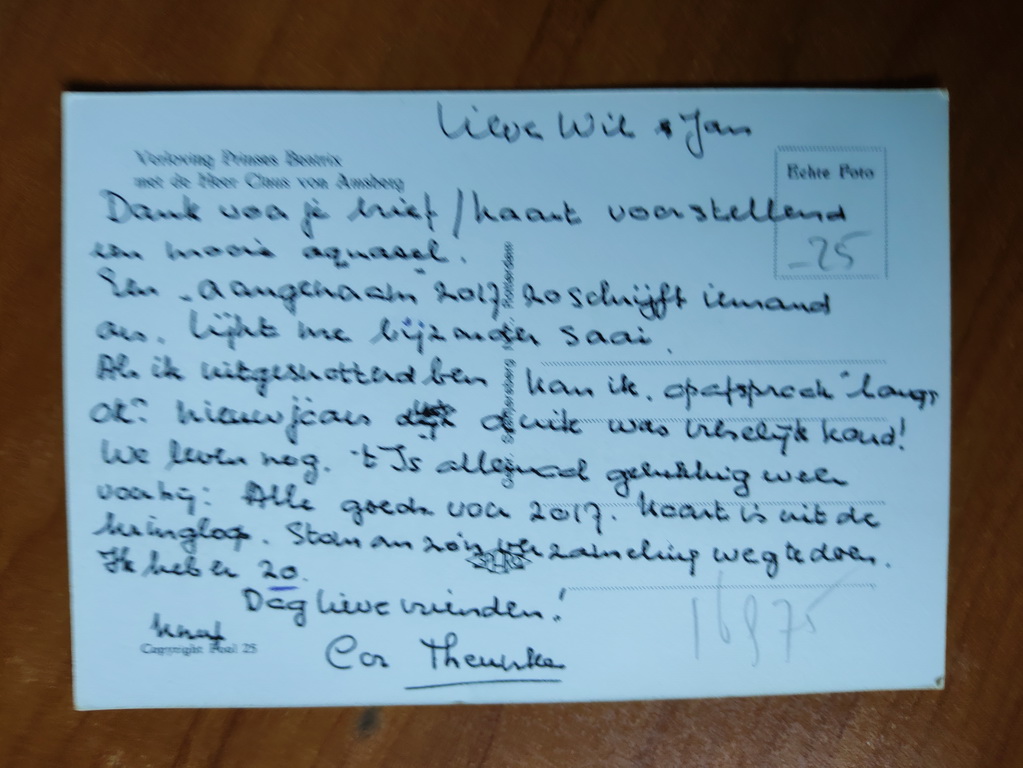 Lieve Wil & Jan
Verloving Prinses Beatrix
met de Heer Claus von Amsberg
Echte Foto
-25
Dank voor je brief/kaart voorstellend
een mooie aquasel.
Een "aangenaam" 2017, zo schrijft iemand
ons. Lijkt me bijzonder saai.
Als ik uitgesnotterd ben kan ik, op afspraak langs
ok? Nieuwjaars duik was vreselijk koud!
We leven nog. 't Is allemaal gelukkig weer
voorbij: Alle goeds voor 2017. Kaart is uit de
kringloop. Stom om zo'n verzameling weg te doen.
Ik heb er 20.
Dag lieve vrienden!
Knuf
Copyright Foal 25
Cor Theunke
Rotterdam